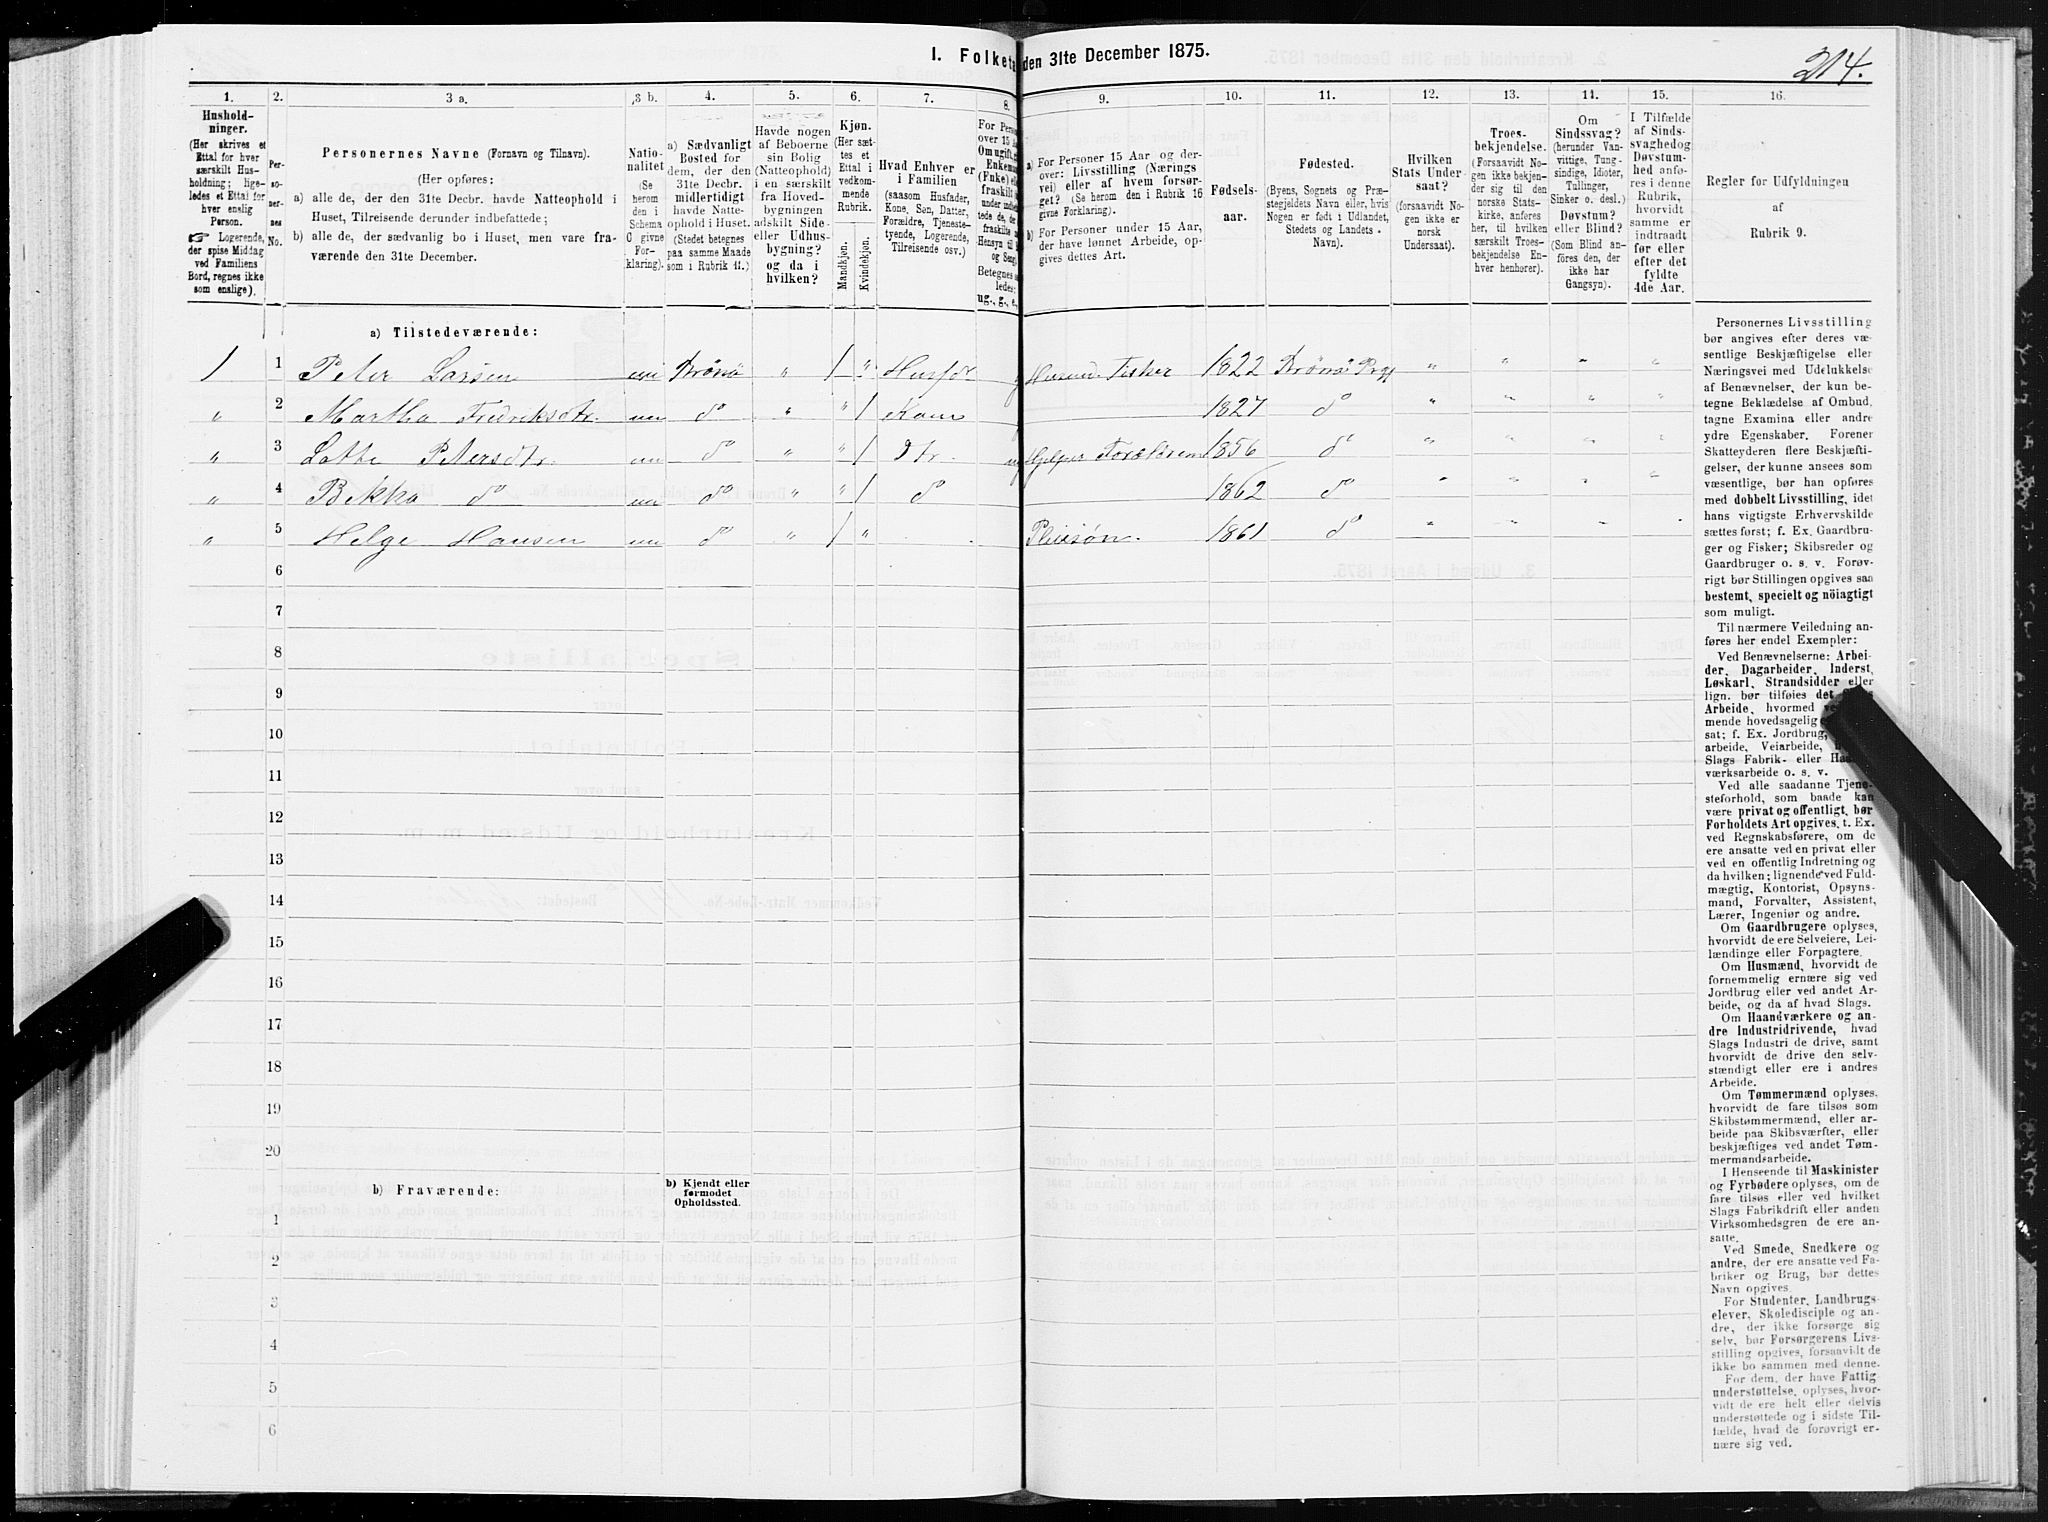 I. Folketæ den 31te December 1875.
214.
1. 2. 3 a. 3 b. 4. 5. 6. 7. 8. 9. 10. 11. 12. 13. 14. 15. 16.
Hushold-
ninger.
(Her skrives et
Ettal for hver
særskilt Hus-
holdning; lige-
ledes et Ettal for
hver enslig
Person.
☞ Logerende,
der spise Middag
ved Familiens
Bord, regnes ikke
som enslige).
Per-
so-
ner-
nes
No.
Personernes Navne (Fornavn og Tilnavn).
(Her opføres:
a) alle de, der den 31te Decbr. havde Natteophold i
Huset, Tilreisende derunder indbefattede;
b) alle de, der sædvanlig bo i Huset, men vare fra-
værende den 31te December.
Natio-
nalitet
(Se
herom
den i
Schema
C givne
For-
klaring).
a) Sædvanligt
Bosted for
dem, der den
31te Decbr.
midlertidigt
havde Natte-
ophold i Huset.
(Stedet betegnes
paa samme Maade
som i Rubrik 11.)
Havde nogen
af Beboerne
sin Bolig
(Natteophold)
i en særskilt
fra Hoved-
bygningen
adskilt Side-
eller Udhus-
bygning?
og da i
hvilken?
Kjøn.
(Her sæt-
tes et
Ettal i
vedkom-
mende
Rubrik.
Mandkjøn.
Kvindekjøn.
Hvad Enhver er
i Familien
(saasom Husfader,
Kone, Søn, Datter,
Forældre, Tjeneste-
tyende, Logerende,
Tilreisende osv.)
For Pers
over 15 A
Om ugift, g
Enkem
(Enke) el
fraskilt
under indb
tede de, de
fraskilte
Hensyn til
og Seng
Betegnes s
ledes:
ug., g., e.
a) For Personer 15 Aar og der-
over: Livsstilling (Nærings
vei) eller af hvem forsør-
get? (Se herom den i Rubrik 16
givne Forklaring).
b) For Personer under 15 Aar,
der have lønnet Arbeide, op-
gives dettes Art.
Fødsels-
aar.
Fødested.
(Byens, Sognets og Præ-
stegjeldets Navn eller, hvis
Nogen er født i Udlandet,
Stedets og Landets
Navn).
Hvilken
Stats Under-
saat?
(forsaavidt No-
gen ikke er
norsk
Undersaat).
Troes-
bekjendelse.
(Forsaavidt No-
gen ikke bekjen-
der sig til den
norske Stats-
kirke, anføres
her, til hvilken
særskilt Troes-
bekjendelse En-
hver henhører).
Om
Sindssvag?
(herunder Van-
vittige, Tung-
sindige, Idioter,
Tullinger,
Sinker o. desl.)
Døvstum?
eller Blind?
(Som Blind an-
føres den, der
ikke har
Gangsyn).
I Tilfælde
af Sinds-
svaghed og
Døvstum-
hed anfø-
res i denne
Rubrik,
hvorvidt
samme er
indtraadt
før eller
efter det
fyldte
4de Aar.
Regler for Udfyldningen
af
Rubrik 9.
a) Tilstedeværende:
1 1 Peter Larsen Drönö " 1 " Husfdr Fisker 1822 Drönö " " " "
" 2 Martha Fredriksdtr. do " " 1 Kone 1827 do " " " "
" 3 Lotte Petersdtr. do " " 1 Dtr. 1856 do " " " "
" 4 Bekka do do " " 1 do 1862 do " " " "
" 5 Helge Hansen do " 1 " Pleiesön. 1861 do " " " "
6
7
8
9
10
11
12
13
14
15
16
17
18
19
20
b) Fraværende:
b) Kjendt eller
formodet
Opholdssted.
1
2
3
4
5
6
Personernes Livsstilling
bør angives efter deres væ-
sentlige Beskjæftigelse eller
Næringsvei med Udelukkelse
af Benævnelser, der kun be-
tegne Beklædelse af Ombud,
tagne Examina eller andre
ydre Egenskaber. Forener
Skatteyderen flere Beskjæfti-
gelser, der kunne ansees som
væsentlige, bør han opføres
med dobbelt Livsstilling, idet
hans vigtigste Erhvervskilde
sættes først; f. Ex. Gaardbru-
ger og Fisker; Skibsreder og
Gaardbruger o. s. v. Forøv-
rigt bør Stillingen opgives saa
bestemt, specielt og nöiagtigt
som muligt.
Til nærmere Veiledning an-
føres her endel Exempler:
Ved Benævnelserne: Arbei-
der, Dagarbeider, Inderst,
Løskarl, Strandsidder eller
lign. bør tilføies det
Arbeide, hvormed
mende hovedsagelig
sat; f. Ex. Jordbrug,
arbeide, Veiarbeide,
Slags Fabrik- eller
værksarbeide o. s. v.
Ved alle saadanne Tjene-
steforhold, som baade kan
være privat og offentligt, bør
Forholdets Art opgives, t. Ex.
ved Regnskabsførere, om de
ere ansatte ved en privat eller
ved en offentlig Indretning og
da hvilken; lignende ved Fuld-
mægtig, Kontorist, Opsyns-
mand, Forvalter, Assistent,
Lærer, Ingeniør og andre.
Om Gaardbrugere oplyses,
hvorvidt de ere Selveiere, Lei-
lændinge eller Forpagtere.
Om Husmænd, hvorvidt de
fornemmelig ernære sig ved
Jordbrug eller ved andet Ar-
beide, og da af hvad Slags.
Om Haandværkere og an-
dre Industridrivende, hvad
Slags Industri de drive, samt
hvorvidt de drive den selv-
stændigt eller ere i andres
Arbeide.
Om Tømmermænd oplyses,
hvorvidt de fare tilsøs som
Skibstømmermænd, eller ar-
beide paa Skibsværfter, eller
beskjæftiges ved andet Tøm-
mermandsarbeide.
I Henseende til Maskinister
og Fyrbødere oplyses, om de
fare tilsøs eller ved hvilket
Slags Fabrikdrift eller anden
Virksomhedsgren de ere an-
satte.
Ved Smede, Snedkere og
andre, der ere ansatte ved Fa-
briker og Brug, bør dettes
Navn opgives.
For Studenter, Landbrugs-
elever, Skoledisciple og an-
dre, der ikke forsørge sig
selv, bør Forsørgerens Livs-
stilling opgives, forsaavidt de
ikke bo sammen med denne.
For dem, der have Fattig-
understøttelse, oplyses, hvor-
vidt de ere helt eller delvis
understøttede og i sidste Til-
fælde, hvad de forøvrigt er-
nære sig ved.